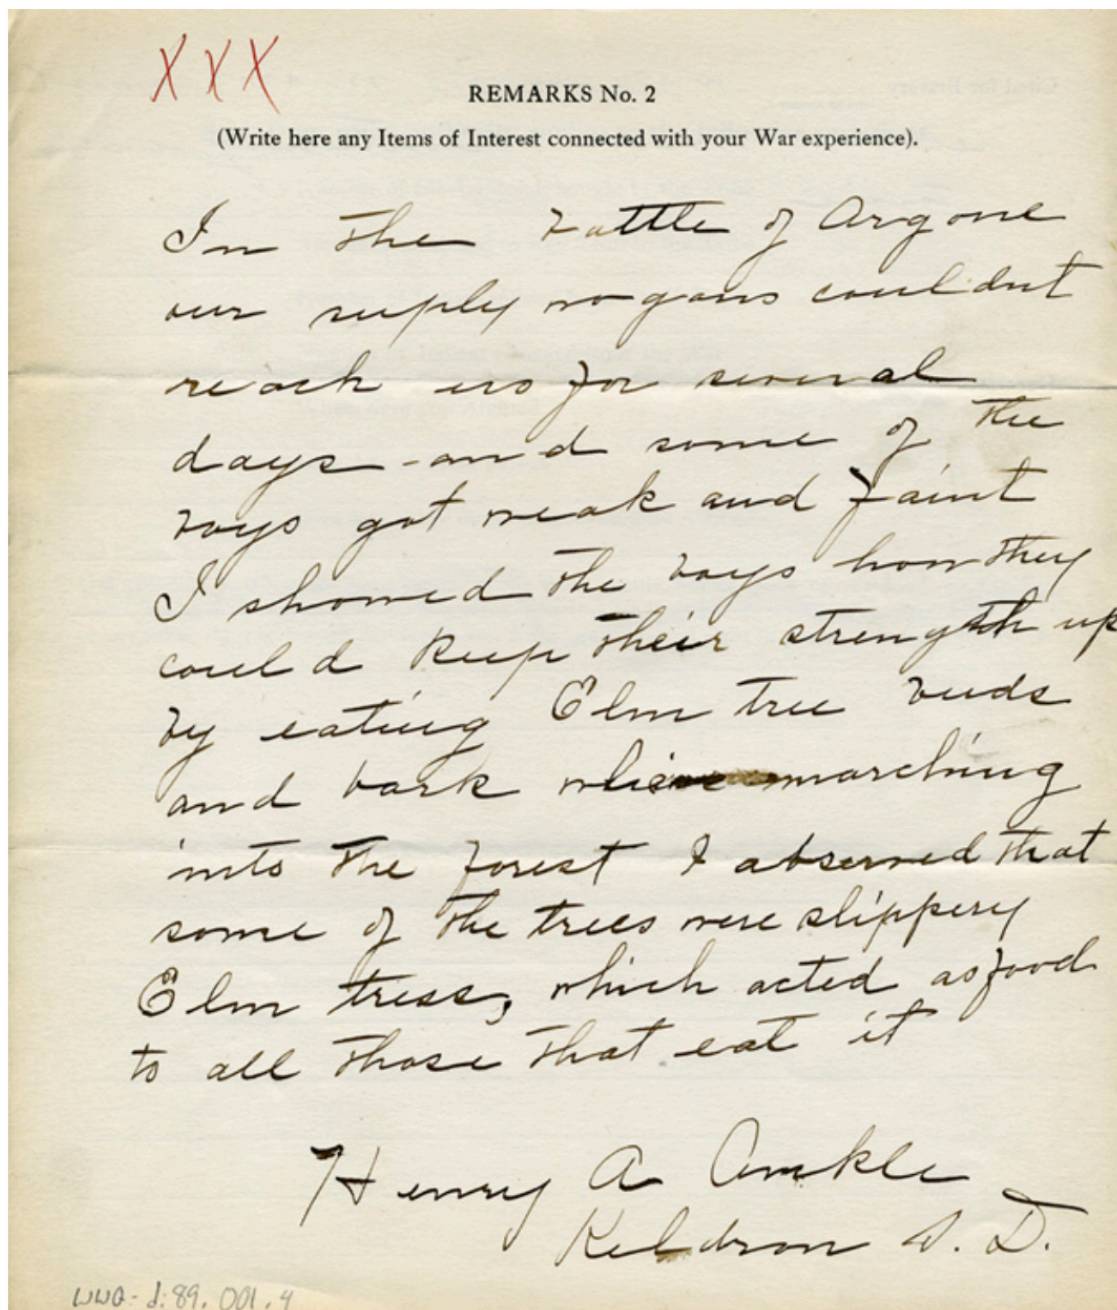 XXX
REMARKS No. 2
(Write here any Items of Interest connected with your War experience).
In the battle of Argone
our suply wagons couldnt
reach us for several
days - and some of the
boys got weak and faint
I showed the boys how they
could keep their strength up
by eating Elm tree buds
and bark while marching
into the forest I observed that
some of the trees were slippery
Elm tress, which acted as food
to all those that eat it
Henry A Ankle
Keldron S. D.
WWQ-d:89.001.4